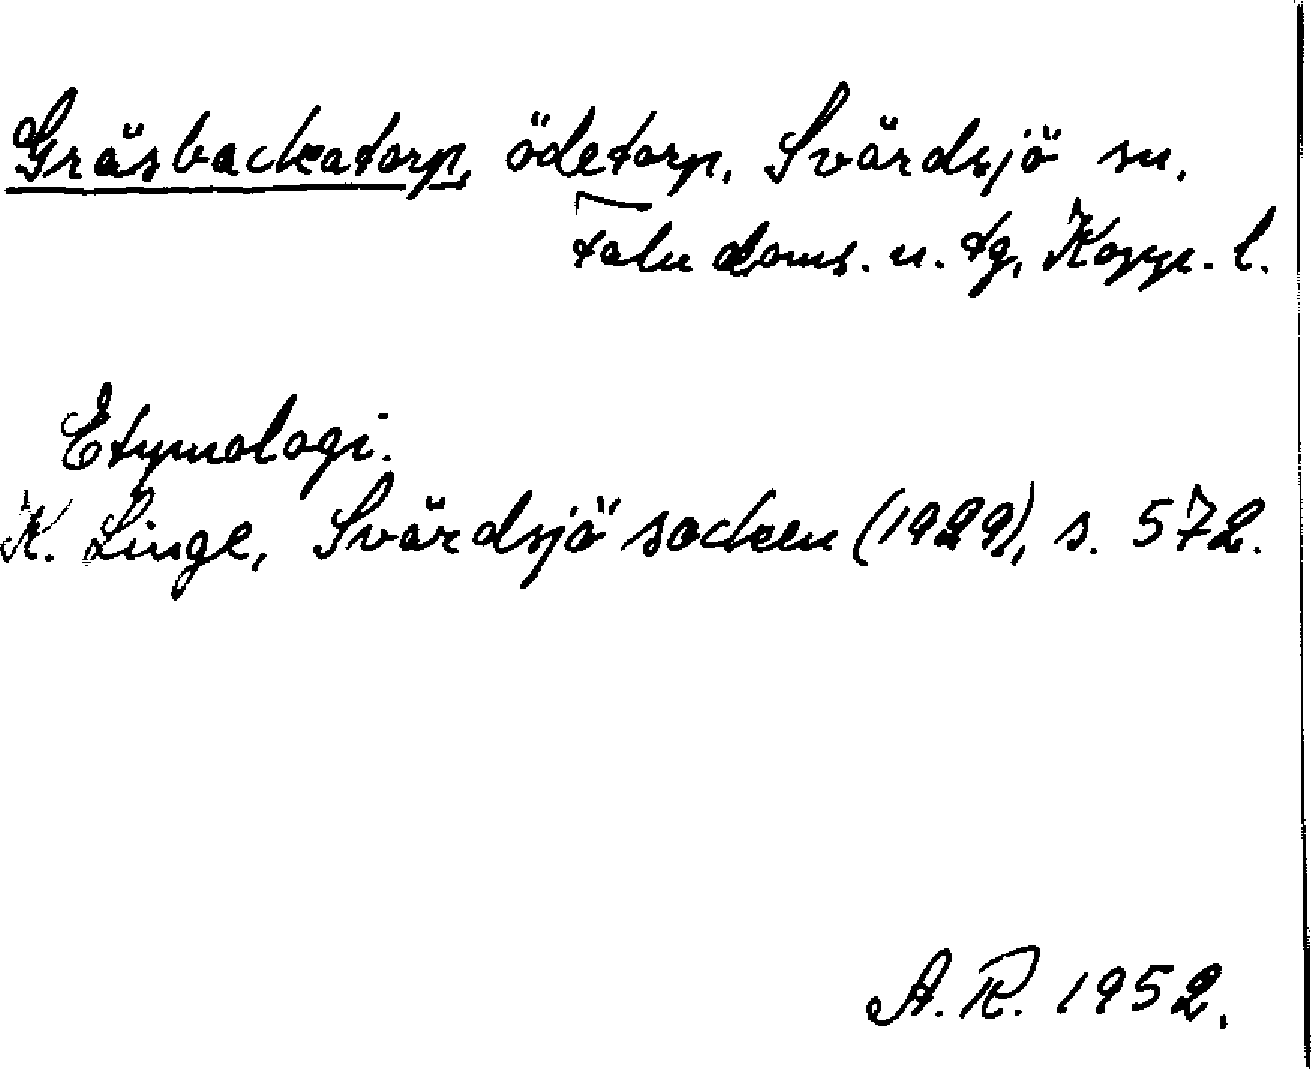 Gräsbackatorp, ödetorp, Svärdsjö sn.
Falu doms. n. tg, Kopp. l.
Etymologi.
K. Linge, Svärdsjö socken (1929), s. 572.
A. R. 1952.